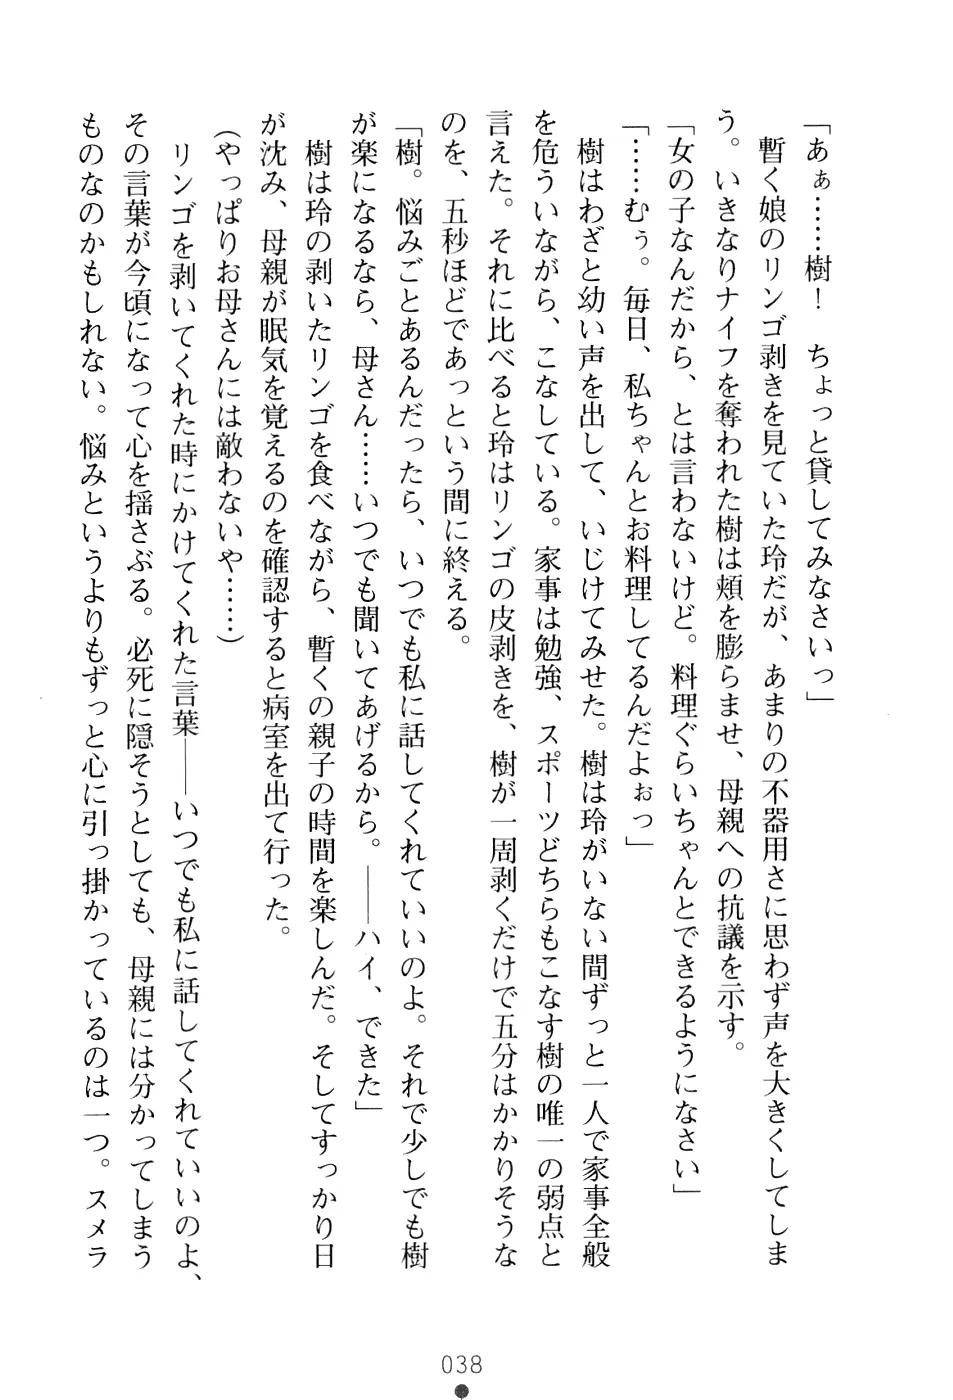 「あぁ……樹！　ちょっと貸してみなさいっ」
　暫く娘のリンゴ剥きを見ていた玲だが、あまりの不器用さに思わず声を大きくしてしま
う。いきなりナイフを奪われた樹は頬を膨らませ、母親への抗議を示す。
「女の子なんだから、とは言わないけど。料理ぐらいちゃんとできるようになさい」
「……むぅ。毎日、私ちゃんとお料理してるんだよぉっ」
　樹はわざと幼い声を出して、いじけてみせた。樹は玲がいない間ずっと一人で家事全般
を危ういながら、こなしている。家事は勉強、スポーツどちらもこなす樹の唯一の弱点と
言えた。それに比べると玲はリンゴの皮剥きを、樹が一周剥くだけで五分はかかりそうな
のを、五秒ほどであっという間に終える。
「樹。悩みごとあるんだったら、いつでも私に話してくれていいのよ。それで少しでも樹
が楽になるなら、母さん……いつでも聞いてあげるから。――ハイ、できた」
　樹は玲の剥いたリンゴを食べながら、暫くの親子の時間を楽しんだ。そしてすっかり日
が沈み、母親が眠気を覚えるのを確認すると病室を出て行った。
（やっぱりお母さんには敵わないや……）
　リンゴを剥いてくれた時にかけてくれた言葉――いつでも私に話してくれていいのよ、
その言葉が今頃になって心を揺さぶる。必死に隠そうとしても、母親には分かってしまう
ものなのかもしれない。悩みというよりもずっと心に引っ掛かっているのは一つ。スメラ
038